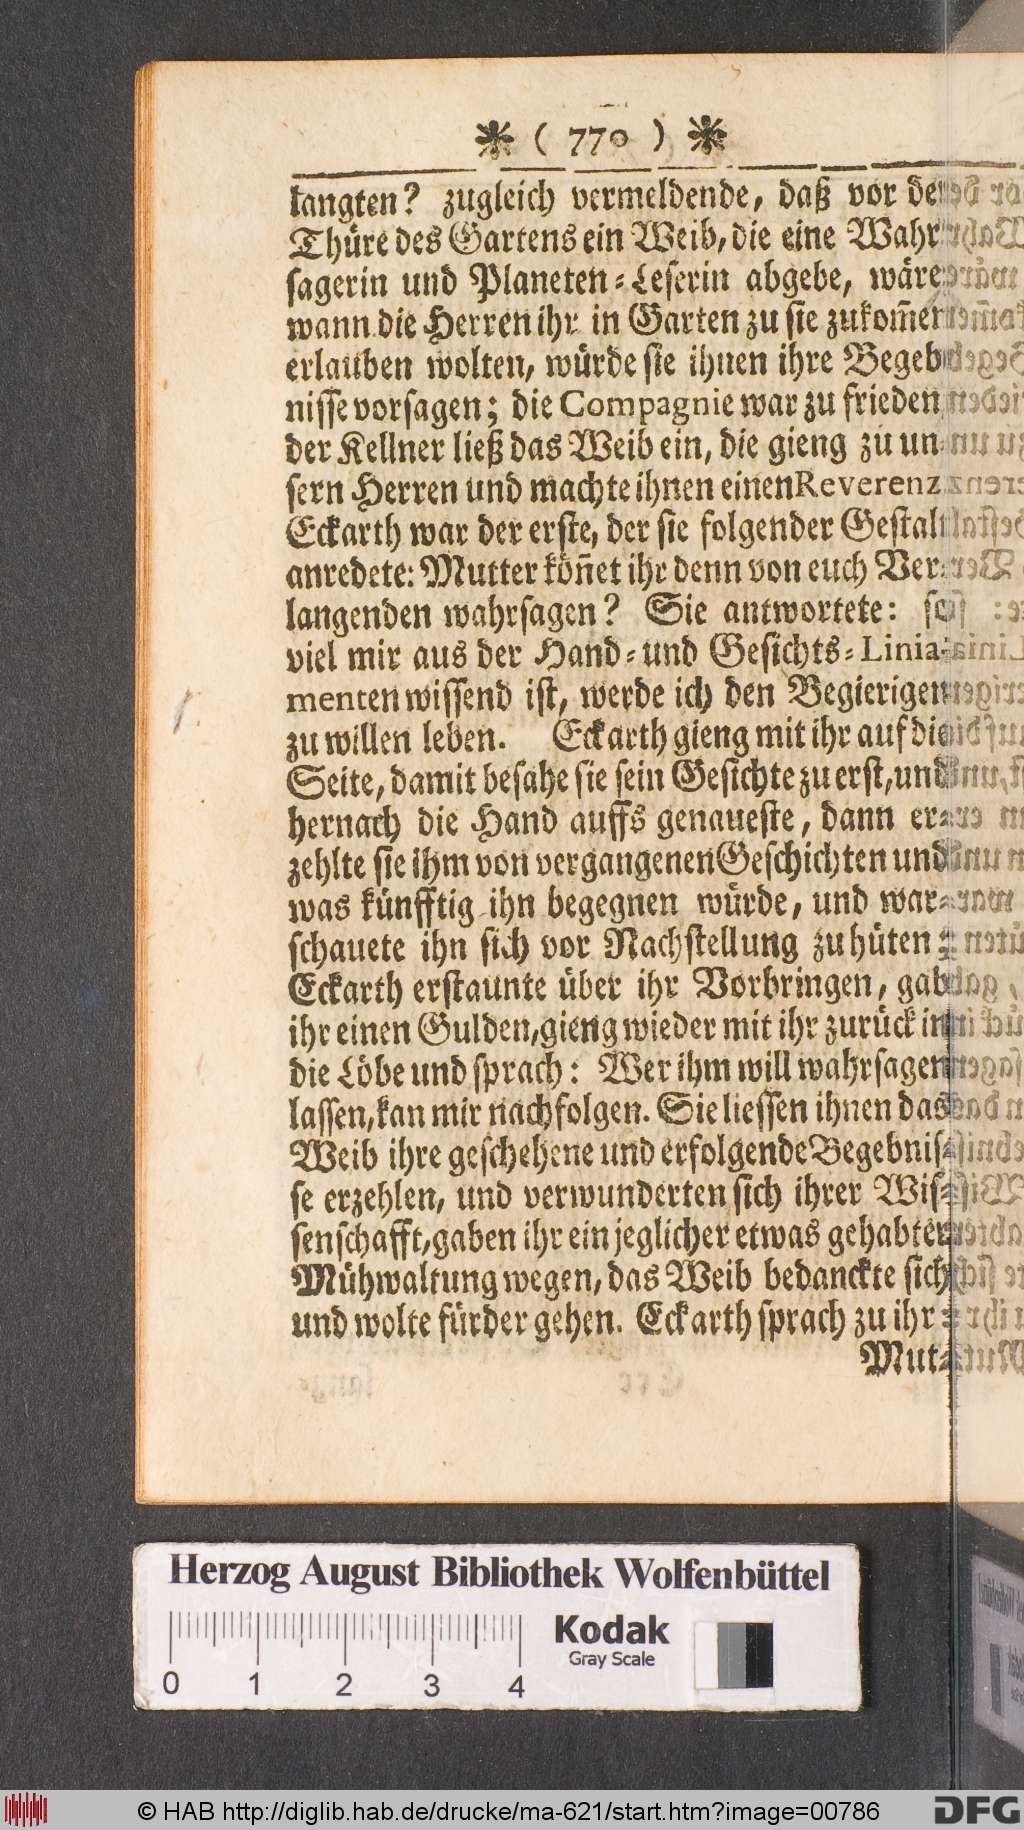 ( 770 )
langten? zugleich vermeldende, daß vor der
Thüre des Gartens ein Weib, die eine Wahr
sagerin und Planeten-Leserin abgebe, wäre
wann die Herren ihr in Garten zu sie zukom̃en
erlauben wolten, würde sie ihnen ihre Begeb
nisse vorsagen; die Compagnie war zu frieden
der Kellner ließ das Weib ein, die gieng zu un-
sern Herren und machte ihnen einen Reverenz
Eckarth war der erste, der sie folgender Gestalt
anredete: Mutter kön̄et ihr denn von euch Ver-
langenden wahrsagen? Sie antwortete: so
viel mir aus der Hand- und Gesichts-Linia-
menten wissend ist, werde ich den Begierigen
zu willen leben. Eckarth gieng mit ihr auf die
Seite, damit besahe sie sein Gesichte zu erst, und
hernach die Hand auffs genaueste, dann er-
zehlte sie ihm von vergangenen Geschichten und
was künfftig ihn begegnen würde, und war-
schauete ihn sich vor Nachstellung zu hüten
Eckarth erstaunte über ihr Vorbringen, gab
ihr einen Gulden, gieng wieder mit ihr zurück in
die Löbe und sprach: Wer ihm will wahrsagen
lassen, kan mir nachfolgen. Sie liessen ihnen das
Weib ihre geschehene und erfolgende Begebnis-
se erzehlen, und verwunderten sich ihrer Wis-
senschafft, gaben ihr ein jeglicher etwas gehabter
Mühwaltung wegen, das Weib bedanckte sich
und wolte fürder gehen. Eckarth sprach zu ihr
Mut-
Herzog August Bibliothek Wolfenbüttel
Kodak
Gray Scale
0 1 2 3 4
© HAB http://diglib.hab.de/drucke/ma-621/start.htm?image=00786
DFG